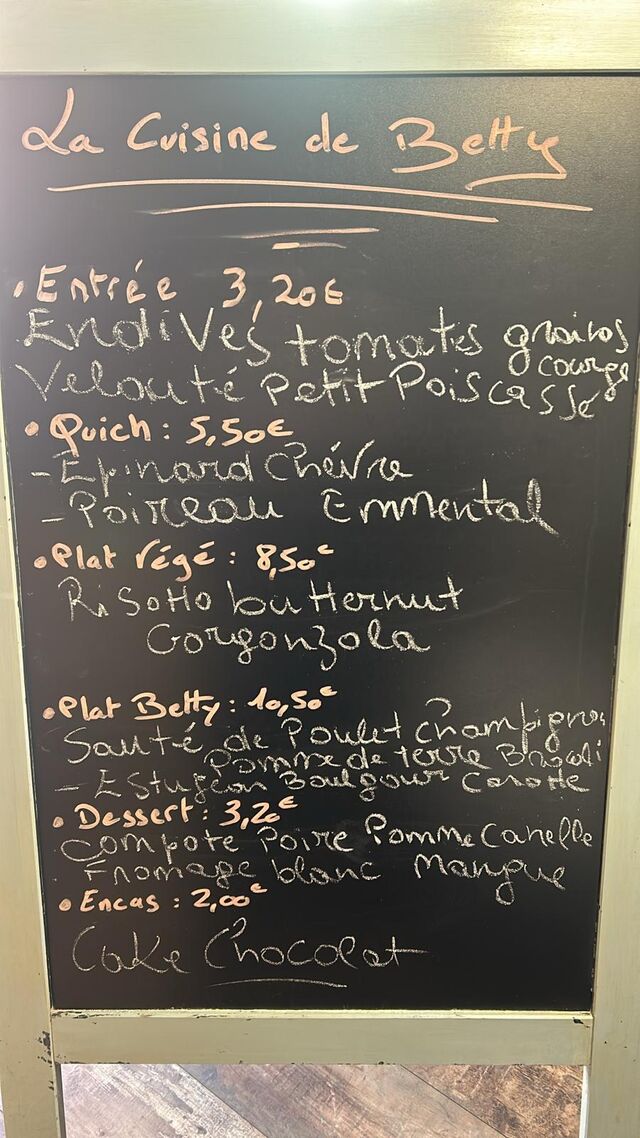 La Cuisine de Betty
• Entrée 3,20€
Endives tomates graines
courge
Velouté Petit Pois cassé
• Quich : 5,50€
- Epinard Chèvre
- Poireau Emmental
• Plat végé : 8,50€
Risotto butternut
Gorgonzola
• Plat Betty : 10,50€
Sauté de Poulet Champignon
Pomme de terre Brocoli
- Esturgeon Boulgour Carotte
• Dessert : 3,20€
Compote Poire Pomme Canelle
Fromage blanc Mangue
• Encas : 2,00€
Cake Chocolat